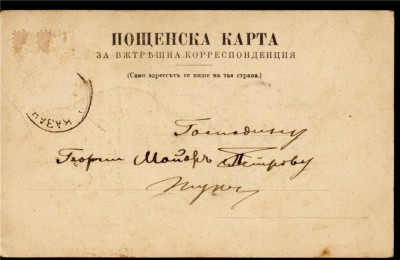 ПОЩЕНСКА КАРТА
ЗА ВѪТРѢШНА КОРРЕСПОНДЕНЦИЯ
(Само адрессътъ се пише на тая страна.)
КАЗАН
Господину
Георги Майоръ Петрову